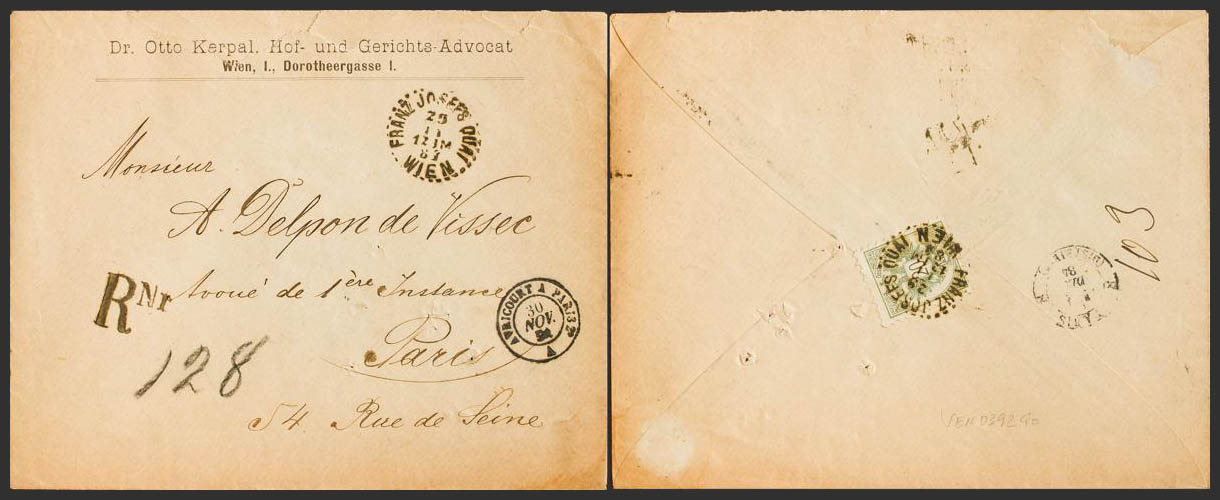 Dr. Otto Kerpal. Hof- und Gerichts-Advocat
Wien, I., Dorotheergasse 1.
FRANZ JOSEFS QUAI
WIEN
Monsieur
A. Delpon de Vissec
Avoué de 1ère Instance
Paris
54 Rue de Seine
RNr
128
AVRICOURT A PARIS
30
NOV.
A
FRANZ JOSEFS QUAI
WIEN
103